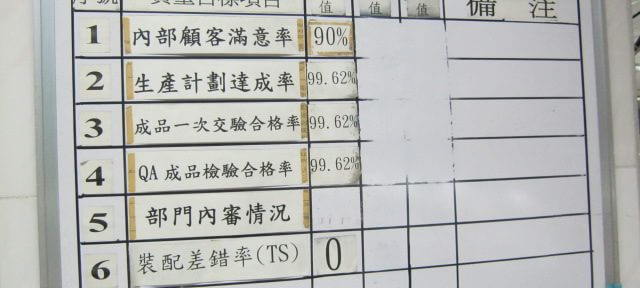 序號 質量目標項目 值 值 值 備注
1 內部顧客滿意率 90%
2 生產計劃達成率 99.62%
3 成品一次交驗合格率 99.62%
4 QA成品檢驗合格率 99.62%
5 部門內審情況
6 裝配差錯率(TS) 0